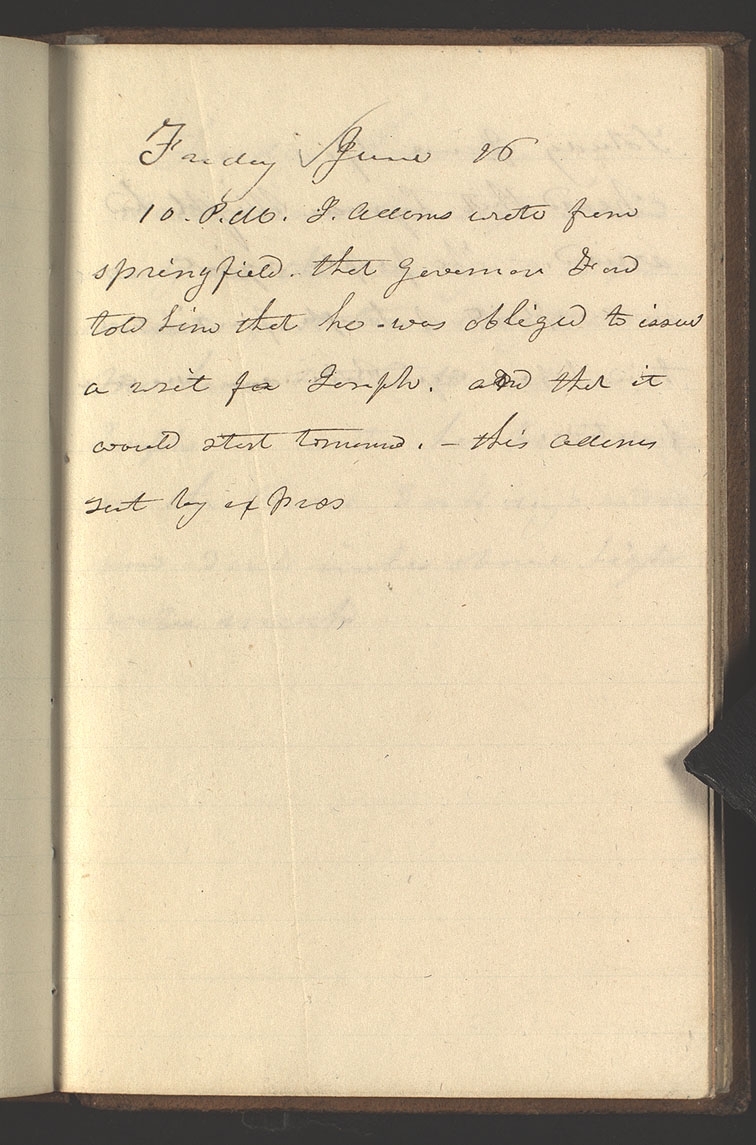 Friday June 16
10. P.M. J. Adams wrote from
springfield. that Governor Ford
told him that he was obliged to issue
a writ for Joseph. and that it
would start tomorrow. – this Adams
sent by express